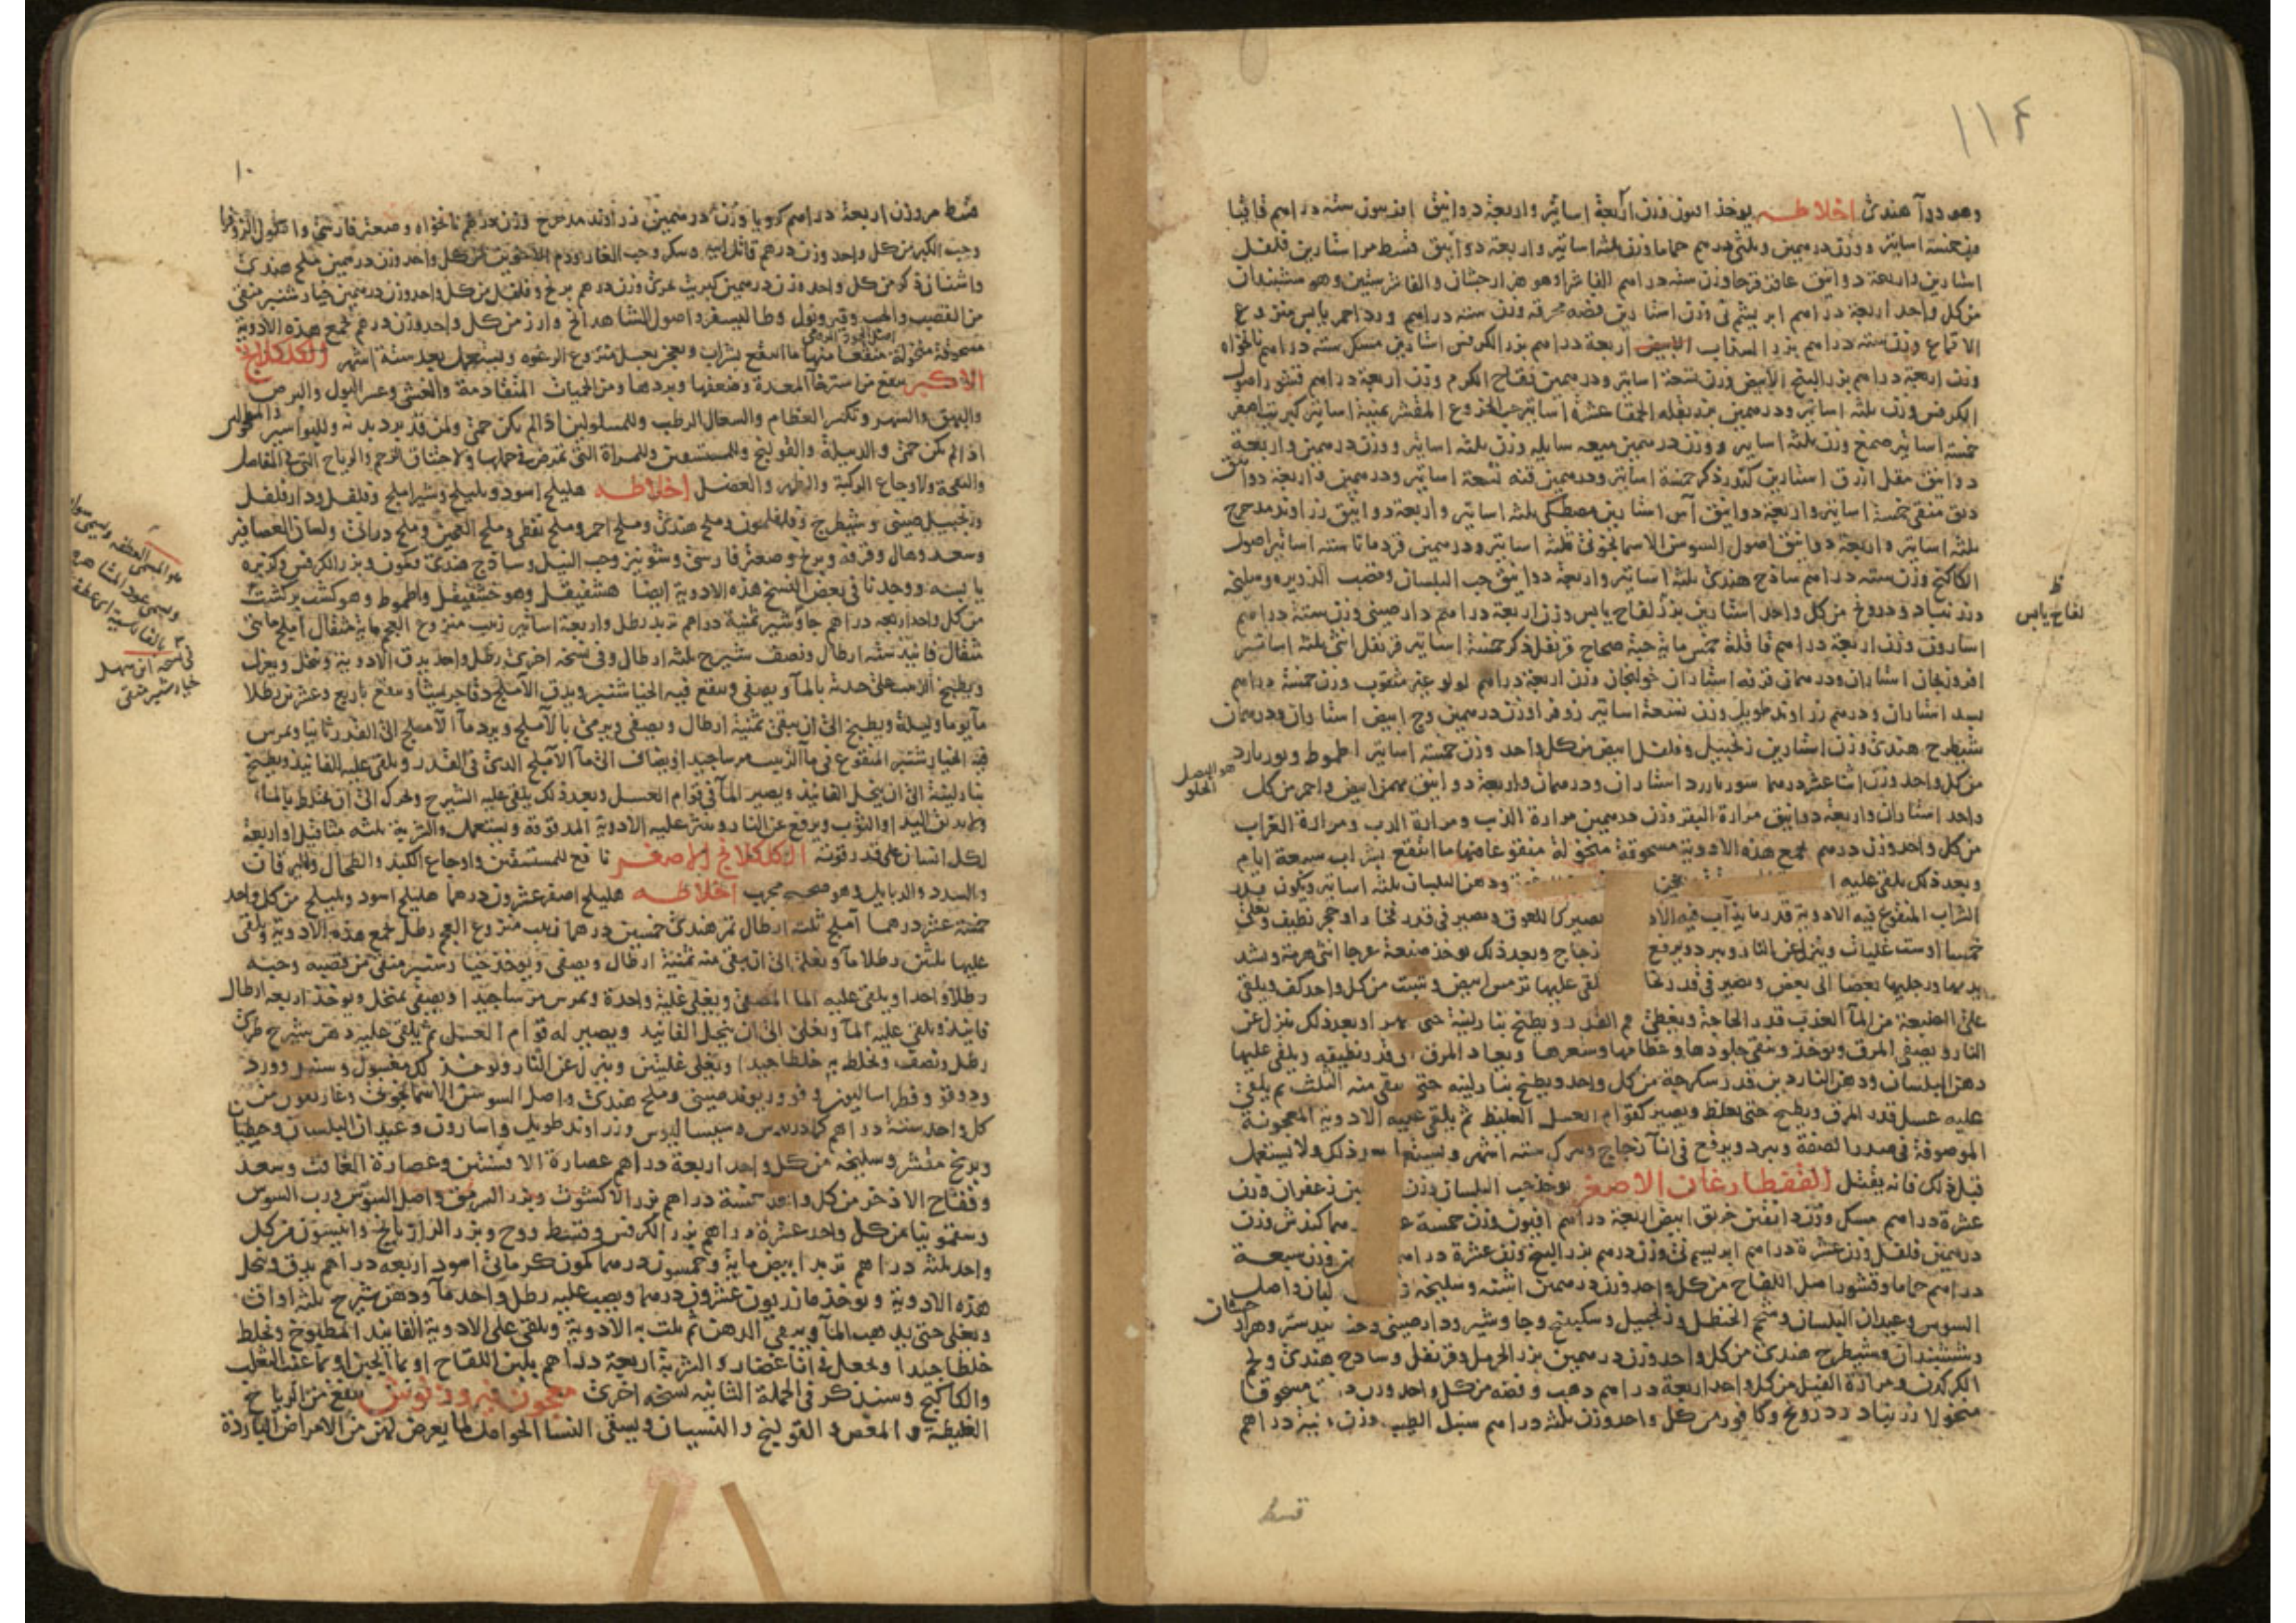 ١١٤
وهو دوآ هندى اخلاطه يوخذ افيون وزن اربعة اساتير واربعة دوانيق افربيون ستة دراهم قاقيا
وزن خمسة اساتير ووزن درهمين وثلثى درهم حماما وزن ثلثة اساتير واربعة دوانيق قسط مر استارين فلفل
استارين واربعة دوانيق عاقرقرحا وزن ستة دراهم الفاشرا وهو هزارجشان والفاشرستين وهو ششبندان
من كل واحد اربعة دراهم ابريشم نى وزن استارين فضة محرقة وزن ستة دراهم ورد احمر يابس منزوع
الاقماع وزن ستة دراهم بزر السذاب الابيض اربعة دراهم بزر الكرفس استارين مسك ستة دراهم نانخواه
وزن اربعة دراهم بزر البنج الابيض وزن تسعة اساتير ودرهمين فقاح الكرم وزن اربعة دراهم قشور اصول
الكرفس وزن ثلثة اساتير ودرهمين بزر بقلة الحمقا عشرة اساتير حب الخروع المقشر ثمنية اساتير كبريت اصفر
خمسة اساتير صمغ وزن ثلثة اساتير ووزن درهمين ميعه سايله وزن ثلثة اساتير ووزن درهمين واربعة
دوانيق مقل ازرق استارين كندر ذكر خمسة اساتير ودرهمين قنه تسعة اساتير ودرهمين واربعة دوانيق
دبق منقى خمسة اساتير واربعة دوانيق آس استارين مصطكى ثلثة اساتير واربعة دوانيق زراوند مدحرج
ثلثة اساتير واربعة دوانيق اصول السوسن الاسمانجونى ثلثة اساتير ودرهمين قردمانا ستة اساتير اصول
الكاكنج وزن ستة دراهم ساذج هندى ثلثة اساتير واربعة دوانيق حب البلسان وقصب الذريره وسليخه
وزرنباد ودرونج من كل واحد استارين بزر لفاح يابس وزن اربعة دراهم دارصينى وزن ستة دراهم
ظ
لفاح يابس
اسارون وزن اربعة دراهم قاقلة خمس ماية حبة صحاح قرنفل ذكر خمسة اساتير قرنفل انثى ثلثة اساتير
افرونجان استاران ودرهمان قرفه استاران خولنجان وزن اربعة دراهم لولو غير مثقوب وزن خمسة دراهم
بسد استاران ودرهم زراوند طويل وزن تسعة اساتير زوفرا وزن درهمين وج ابيض استاران ودرهمان
شيطرج هندى وزن استارين زنجبيل وفلفل ابيض من كل واحد وزن خمسة اساتير اطموط وبوربارد
هو البصل
الحلو
من كل واحد وزن اثنا عشر درهما سوربارد استاران ودرهمان واربعة دوانيق بهمن ابيض واحمر من كل
واحد استاران واربعة دوانيق مرارة البقر وزن درهمين مرارة الذب ومرارة الدب ومرارة الغراب
من كل واحد وزن درهم تجمع هذه الادوية مسحوقة منخولة منقوعا منها ما انتقع بشراب سبعة ايام
وبعد ذلك يلقى عليه ودهن البلسان ثلثة اساتير ويكون قدر
الشراب المنقوع فيه الادوية قدر ما يذاب فيه الاد يصير كاللعوق ويصير فى قدر فخار او حجر نظيف ويغلى
خمسا او ست غليات وينزل عن النار ويبرد ويرفع زجاج وبعد ذلك يوخذ ضبعة عرجا انثى هرمة ويشد
يديها ورجليها بعضا الى بعض وتصير فى قدر نحا لقى عليها ترمس ابيض وشبت من كل واحد كف ويلقى
على الضبعة من المآ العذب قدر الحاجة ويغطى فم القدر ويطبخ بنار لينة حتى وبعد ذلك ينزل عن
النار ويصفى المرق ويوخذ وينقى جلودها وعظامها وشعرها ويعاد المرق قدر نظيفه ويلقى عليها
دهن البلسان ودهن الناردين قدر سكرجة من كل واحد ويطبخ بنار لينه حتى يبقى منه الثلث ثم يلقى
عليه عسل قدر المرق ويطبخ حتى يغلظ ويصير كقوام العسل الغليظ ثم يلقى عليه الادوية المعجونة
الموصوفة فى صدر الصفة ويبرد ويرفع فى انآ زجاج ويترك ستة اشهر ويستعمل بعد ذلك ولا يستعمل
قبل ذلك فانه يقتل الفقطارغان الاصغر يوخذ حب البلسان وزن زعفران وزن
عشرة دراهم مسك وزن دانقين خربق ابيض اربعة دراهم افيون وزن خمسة كندش وزن
درهمين فلفل وزن عشرة دراهم ابريسم نى وزن درهم بزر البنج وزن عشرة دراهم وزن سبعة
دراهم حماما وقشور اصل اللفاح من كل واحد وزن درهمين اشنه وسليخه لبان واصل
السوس وعيدان البلسان وشحم الحنظل وزنجبيل وسكبينج وجاوشير ودارصينى وجندبيدستر وهزار
جشان
وششبندان وشيطرج هندى من كل واحد وزن درهمين بزر الحرمل وقرنفل وساذج هندى ولحم
الكركدن ومرارة الفيل من كل واحد اربعة دراهم ذهب وفضه من كل واحد وزن مسحوقا
منخولا زرنباد ودرونج وكافور من كل واحد وزن ثلثه دراهم سنبل الطيب وزن ثمنية دراهم
قسط
١٠
قسط مر وزن اربعة دراهم كرويا وزن درهمين زراوند مدحرج وزن درهم نانخواه وصعتر فارسى
وحب الكبر من كل واحد وزن درهم قاتل ابيه وسكر وحب الغار ودم الاخوين من كل واحد وزن درهمين ملح هندى
واشنان ذكر من كل واحد وزن درهمين كبريت عرق وزن درهم برنج وفلفل من كل واحد وزن درهمين خيارشنبر منقى
من القصب والحب وطاليسفر واصول الشاهدانج وارز من كل واحد وزن درهم تجمع هذه الادوية
مسحوقة منخولة منقعا منها ما انتقع بشراب ويعجن بعسل منزوع الرغوه ويستعمل بعد ستة اشهر الكلكلانج
الاكبر ينفع من استرخآ المعدة وضعفها وبردها ومن الحميات المتقادمة والغشى وعسر البول والبرص
والبهق والسهر وتكسر العظام والسعال الرطب وللمسلولين اذا لم يكن حمى ولمن قد برد بدنه وللبواسير
اذا لم يكن حمى والدبيلة والقولنج وللمستسقين وللمراة التى تمرض فى حملها ولاختناق الرحم والرياح التى فى المفاصل
والنكبة ولاوجاع الركبة والظهر والعضل اخلاطه هليلج اسود وبليلج وشيراملج وفلفل ودارفلفل
وزنجبيل صينى وشيطرج وفلفلمون وملح هندى وملح احمر وملح نفطى وملح العجين وملح درانى ولسان العصافير
وسعد وهال وقرفه وبرنج وصعتر فارسى وشونيز وحب النيل وساذج هندى وكمون وبزر الكرفس وكزبره
يابسه ووجدنا فى بعض النسخ هذه الادوية ايضا هشفيقل وهو خشفيقل واطموط وهو كشت بركشت
من كل واحد اربعة دراهم جاوشير ثمنية دراهم تربد رطل واربعة اساتير زبيب منزوع العجم ماية مثقال املج مايتى
مثقال فانيذ ستة ارطال ونصف شيرج ثلثة ارطال وفى نسخه اخرى رطل واحد يدق الادوية وتنخل ويعزل
ويطبخ الزبيب على حدته بالمآ ويصفى وينقع فيه الخيارشنبر ويدق الاملج دقا جريشا وينقع باربع وعشرين رطلا
مآ يوما وليلة ويطبخ الى ان يبقى ثمنية ارطال ويصفى ويرمى بالاملج ويرد مآ الاملج الى القدر ثانيا ويمرس
فيه الخيارشنبر المنقوع فى مآ الزبيب مرسا جيدا ويضاف الى مآ الاملج الذى فى القدر ويلقى عليه الفانيذ ويطبخ
بنار لينة الى ان ينحل الفانيذ ويصير المآ فى قوام العسل وبعد ذلك يلقى عليه الشيرج ويحرك الى ان يختلط بالمآ
ولا يدبق اليد او الثوب ويرفع عن النار وينثر عليه الادوية المدقوقة ويستعمل والشربة ثلثه مثاقيل او اربعة
لكل انسان على قدر قوته الكلكلانج الاصغر نافع للمستسقين واوجاع الكبد والطحال واليرقان
والسدد والدبايل وهو صحيح مجرب اخلاطه هليلج اصفر عشرون درهما هليلج اسود وبليلج من كل واحد
خمسة عشر درهما املج ثلثة ارطال تمر هندى خمسين درهما زبيب منزوع العجم رطل تجمع هذه الادوية ويلقى
عليها ثلثين رطلا مآ ويغلى الى ان يبقى منه ثمنية ارطال ويصفى ويوخذ خيارشنبر منقى من قصبه وحبه
رطلا واحدا ويلقى عليه المآ المصفى ويغلى غلية واحدة ويمرس مرسا جيدا ويصفى بمنخل ويوخذ اربعة ارطال
فانيذ ويلقى عليه المآ ويغلى الى ان ينحل الفانيذ ويصير له قوام العسل ثم يلقى عليه دهن شيرج طرى
رطل ونصف ويخلط به خلطا جيدا ويغلى غليتين وينزل عن النار ويوخذ لك مغسول وسنبل وورد
ودوقو وفطراساليون وفو وريوند صينى وملح هندى واصل السوسن الاسمانجونى وغاريقون من
كل واحد ستة دراهم كمادريوس وسيساليوس وزراوند طويل واسارون وعيدان البلسان وجنطيانا
وبرنج مقشر وسليخه من كل واحد اربعة دراهم عصارة الافسنتين وعصارة الغافت وسعد
وفقاح الاذخر من كل واحد خمسة دراهم بزر الاكشوث وبزر السرمق واصل السوس ورب السوس
وسقمونيا من كل واحد عشرة دراهم بزر الكرفس وقسط ووج وبزر الرازيانج وانيسون من كل
واحد ثلثة دراهم تربد ابيض ماية وخمسون درهما كمون كرمانى اسود اربعه دراهم يدق وينخل
هذه الادوية ويوخذ مازريون عشرون درهما ويصب عليه رطل واحد مآ ودهن شيرج ثلثة اواق
ويغلى حتى يذهب المآ ويبقى الدهن ثم يلت به الادوية ويلقى على الادوية الفانيذ المطبوخ ويخلط
خلطا جيدا ويجعل فى انآ غضار والشربة اربعة دراهم بلبن اللقاح او بمآ الجبن او بمآ عنب الثعلب
والكاكنج وسنذكر فى الجملة الثانيه نسخه اخرى معجون فيروزنوش ينفع من الرياح
الغليظة والمغص والقولنج والنسيان ويسقى النسا الحوامل لما يعرض لهن من الامراض الباردة
فى نسخه ابن سهل
خيارشنبر منقى